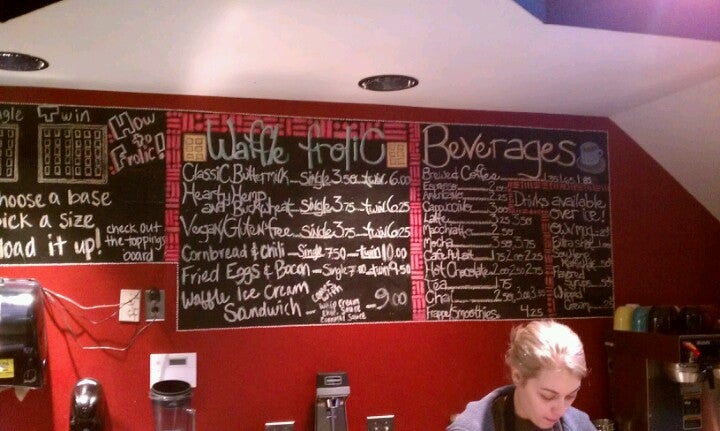 Twin
How
to
Frolic!
choose a base
pick a size
load it up!
check out
the toppings
board
Waffle frolic
Classic Buttermilk Single 3.50 twin 6.00
Hearty Hemp
and Buckwheat Single 3.75 twin 6.25
Vegan/Gluten free Single 3.75 twin 6.25
Cornbread & Chili Single 7.50 twin 10.00
Fried Eggs & Bacon Single 7.00 twin 9.50
Waffle Ice Cream
Sandwich 9.00
Whip Cream
Caramel Sauce
Beverages
Brewed Coffee
Espresso
Americano
Cappuccino
Latte
Macchiato
Mocha
Cafe Au Lait
Hot Chocolate 2.00 2.50 2.75
Tea 1.75
Chai
Frappe/Smoothies 4.25
Drinks available
over ice!
Whipped
Cream